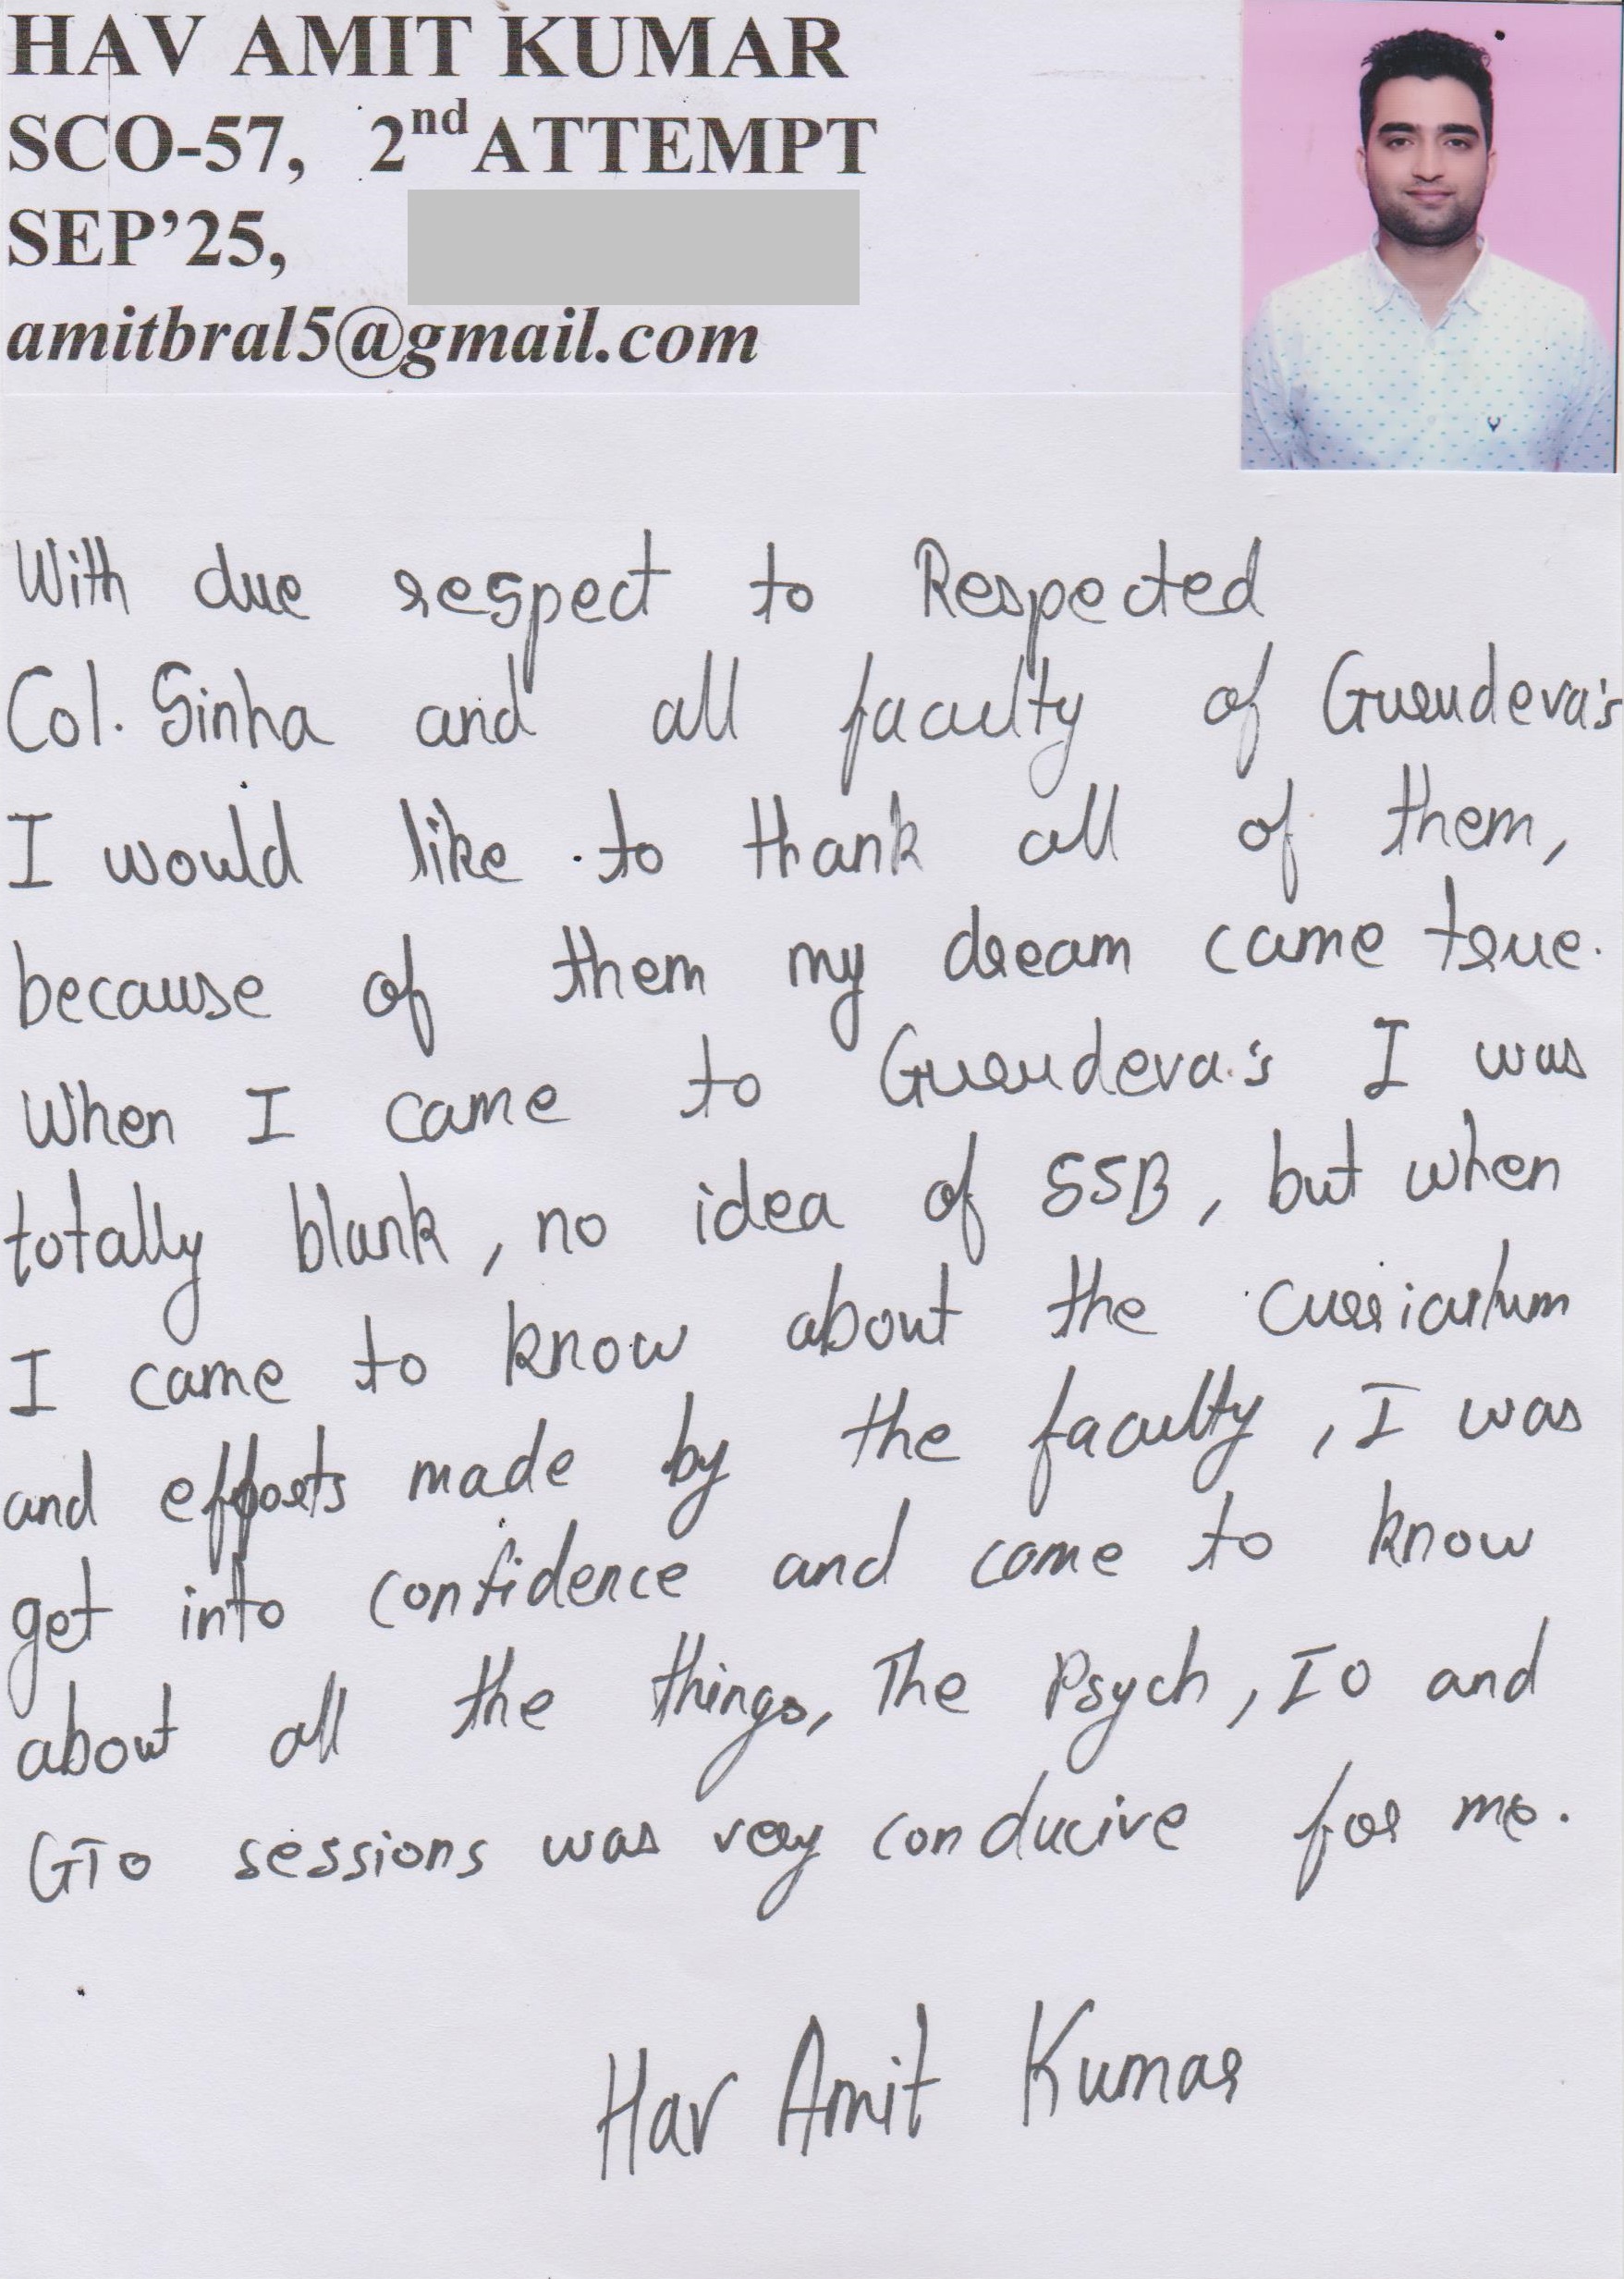 HAV AMIT KUMAR
SCO-57, 2nd ATTEMPT
SEP'25,
amitbral5@gmail.com
With due respect to Respected
Col. Sinha and all faculty of Gurudeva's
I would like to thank all of them,
because of them my dream came true.
When I came to Gurudeva's I was
totally blank, no idea of SSB, but when
I came to know about the curriculum
and efforts made by the faculty, I was
get into confidence and come to know
about all the things, The Psych, IO and
GTO sessions was very conducive for me.
Hav Amit Kumar